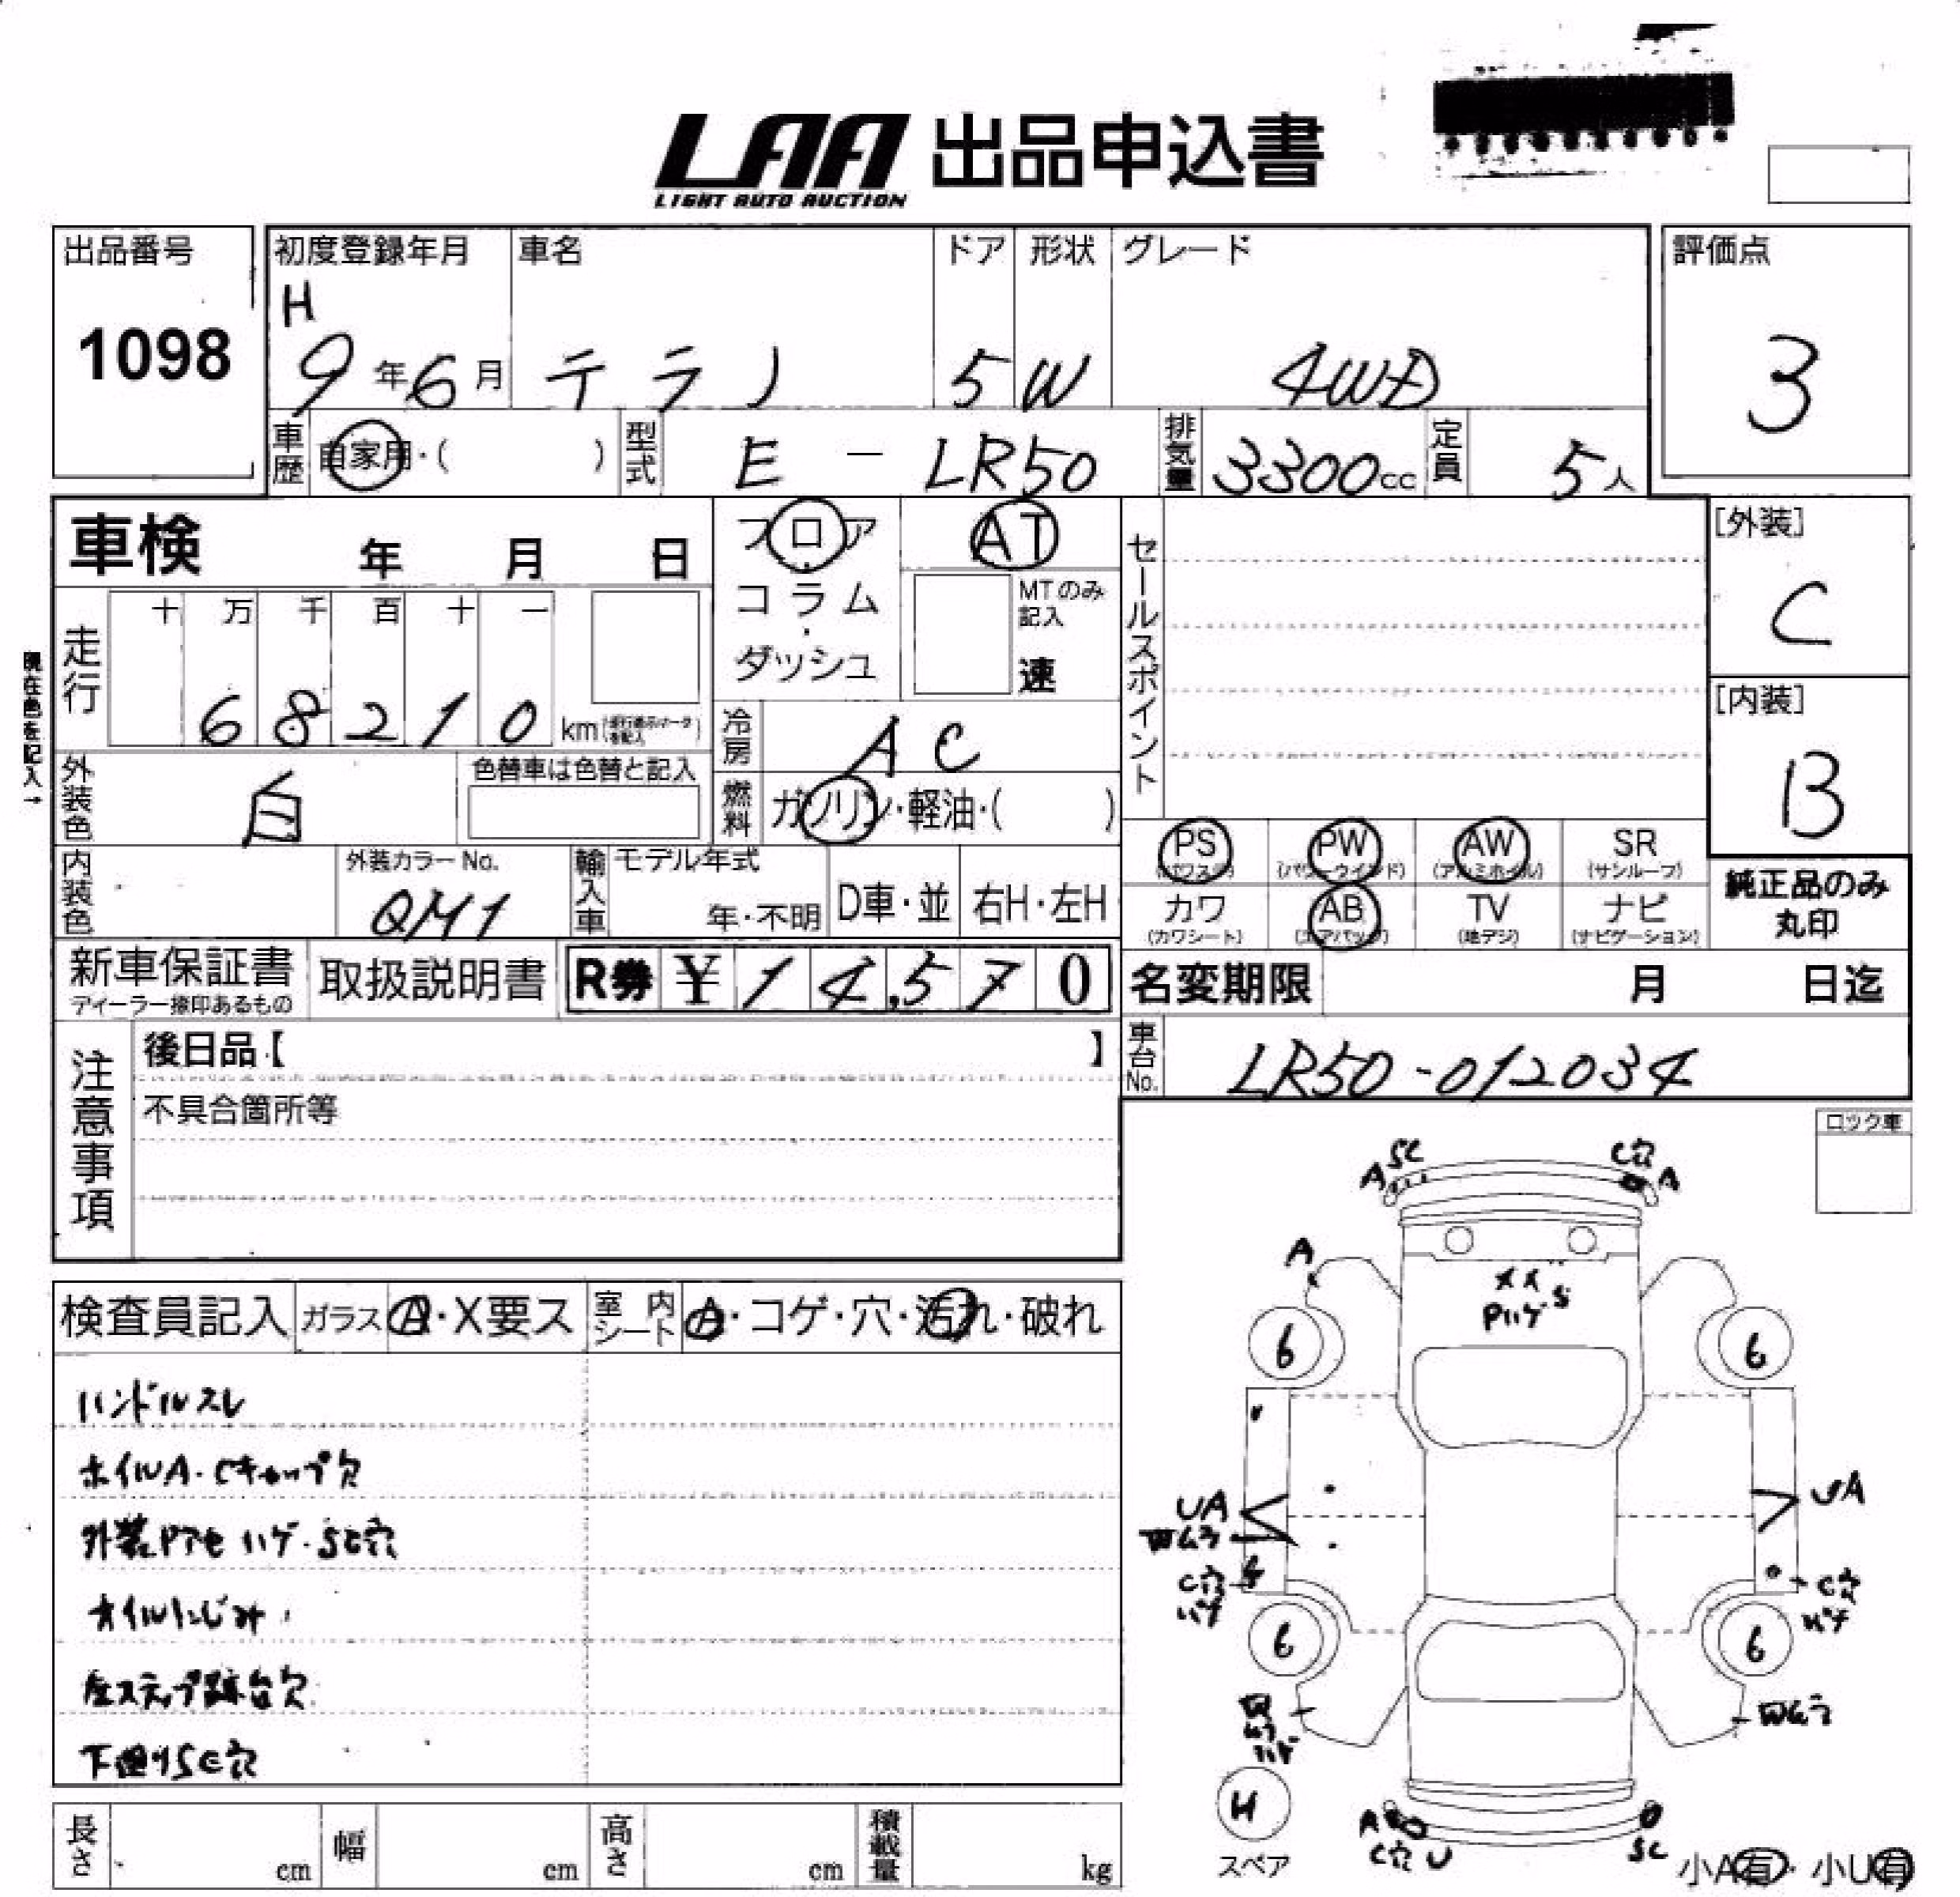 LAA 出品申込書
LIGHT AUTO AUCTION
出品番号
1098
初度登録年月
H
9年6月
車名
テラノ
ドア
5
形状
W
グレード
4WD
評価点
3
車歴 自家用・( )
型式 E - LR50
排気量 3300cc
定員 5人
車検 年 月 日
フロア
コラム
・
ダッシュ
AT
MTのみ
記入
速
セールスポイント
[外装]
C
[内装]
B
現在色を記入→
走行
十 万 千 百 十 一
6 8 2 1 0 km
冷房 AC
燃料 ガソリン・軽油・( )
外装色 白
色替車は色替と記入
内装色
外装カラーNo.
QM1
輸入車
モデル年式
年・不明
D車・並
右H・左H
PS
(パワステ)
PW
(パワーウインド)
AW
(アルミホイル)
SR
(サンルーフ)
カワ
(カワシート)
AB
(エアバック)
TV
(地デジ)
ナビ
(ナビゲーション)
純正品のみ
丸印
新車保証書
ディーラー捺印あるもの
取扱説明書
R券 ¥14,570
名変期限 月 日迄
車台No. LR50-012034
注意事項
後日品【 】
不具合箇所等
ロック車
検査員記入
ガラス A・X要ス
室内シート A・コゲ・穴・汚れ・破れ
ハンドルスレ
ホイルA・Cキャップ欠
外装Pアセ ハゲ・SC穴
オイルにじみ
左ステップ踏台欠
下廻りSC穴
SC
A
C穴
A
A
XX
Pハゲ S
6
6
UA
UA
凹ムラ
C穴
C穴
6
6
凹ムラ
ハゲ
凹ムラ
H
スペア
A
C穴 U
SC
小A有・小U有
長さ cm
幅 cm
高さ cm
積載量 kg